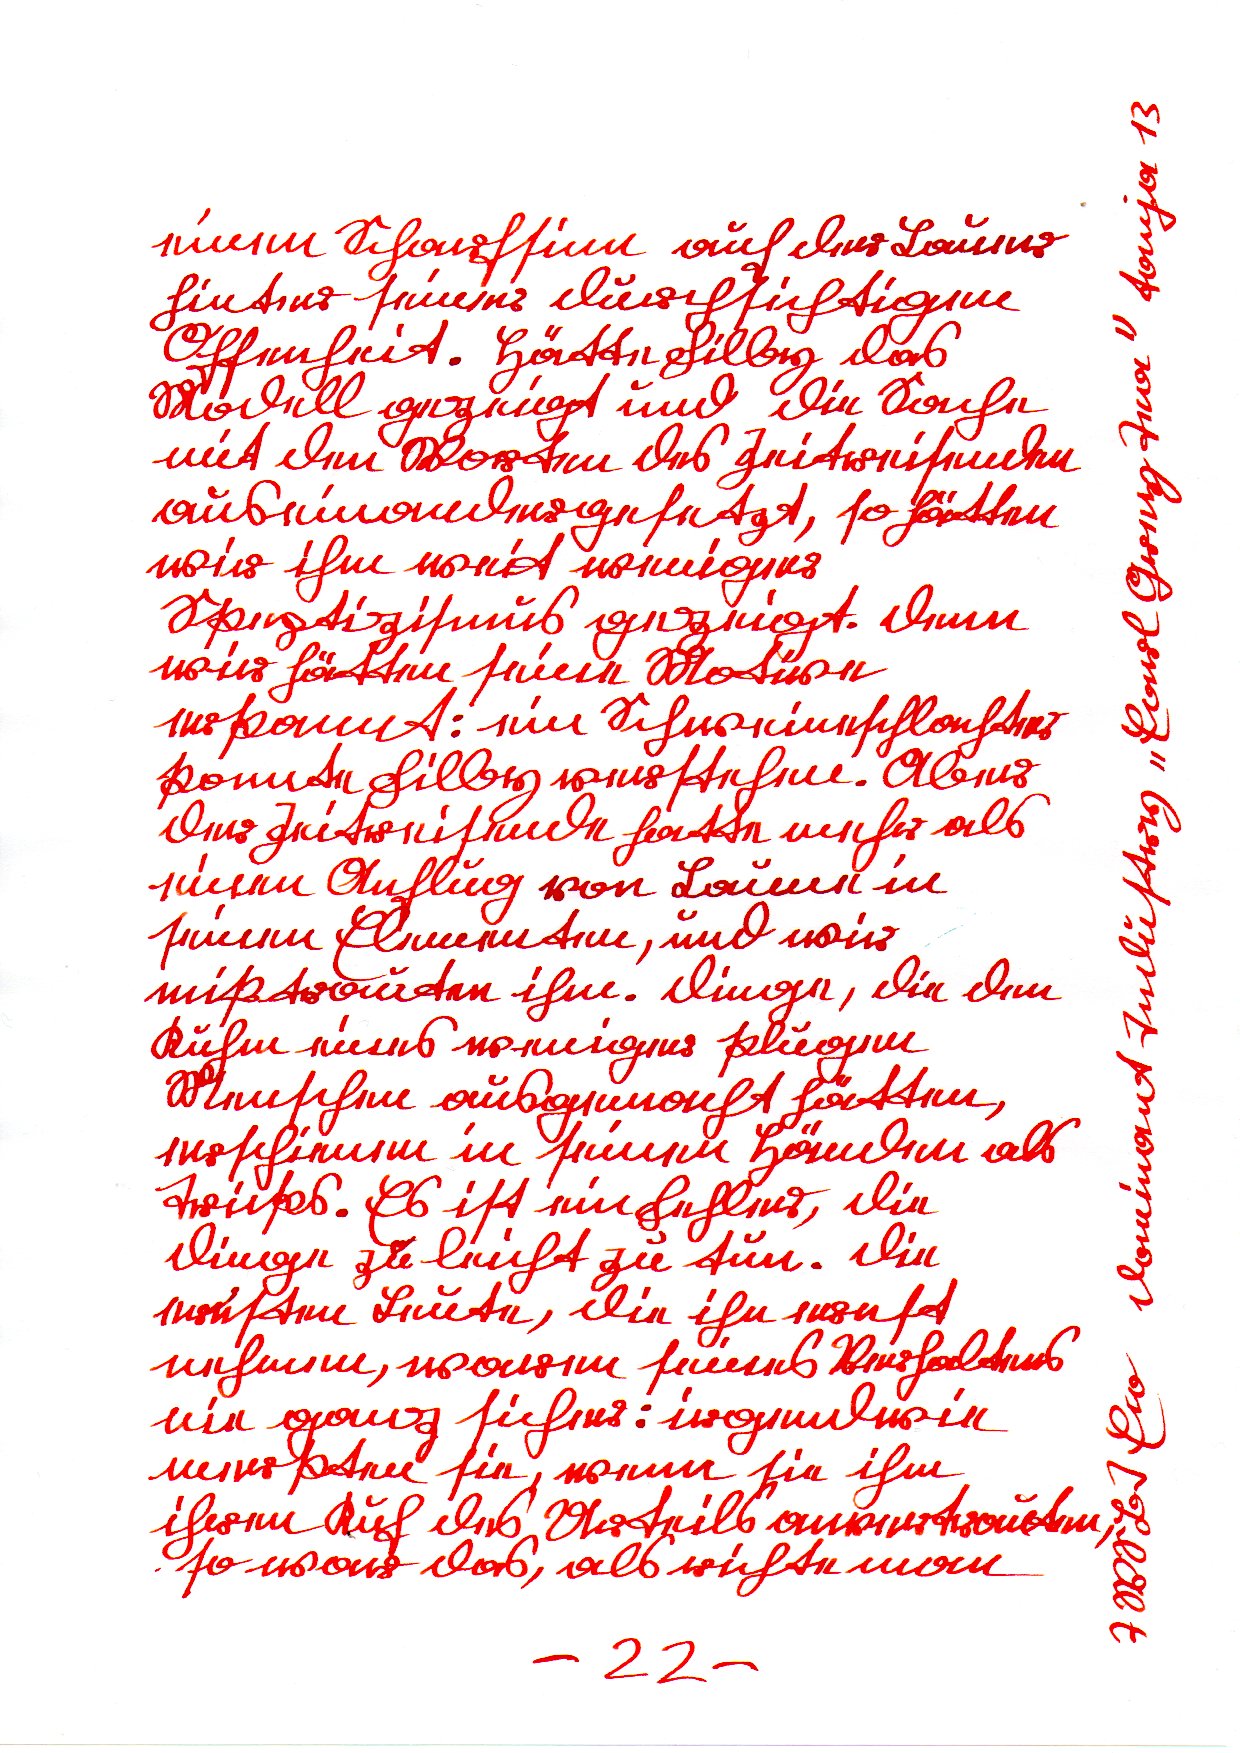 einem Scharfsinn auf der Lauer
hinter seiner durchsichtigen
Offenheit. Hätte Filby das
Modell gezeigt und die Sache
mit den Worten des Zeitreisenden
auseinandergesetzt, so hätten
wir ihm weit weniger
Skeptizismus gezeigt. Denn
wir hätten seine Motive
erkannt: ein Schweineschlachter
konnte Filby verstehen. Aber
der Zeitreisende hatte mehr als
einen Anflug von Launen in
seinen Elementen, und wir
mißtrauten ihm. Dinge, die den
Ruhm eines weniger klugen
Menschen ausgemacht hätten,
erschienen in seinen Händen als
Tricks. Es ist ein Fehler, die
Dinge zu leicht zu tun. Die
ernsten Leute, die ihn ernst
nehmen, waren seines Verhaltens
nie ganz sicher: irgendwie
merkten sie, wenn sie ihm
ihren Ruf des Urteils anvertrauten,
so war das, als richte man
-22-
dominant Industry "Carl Georg